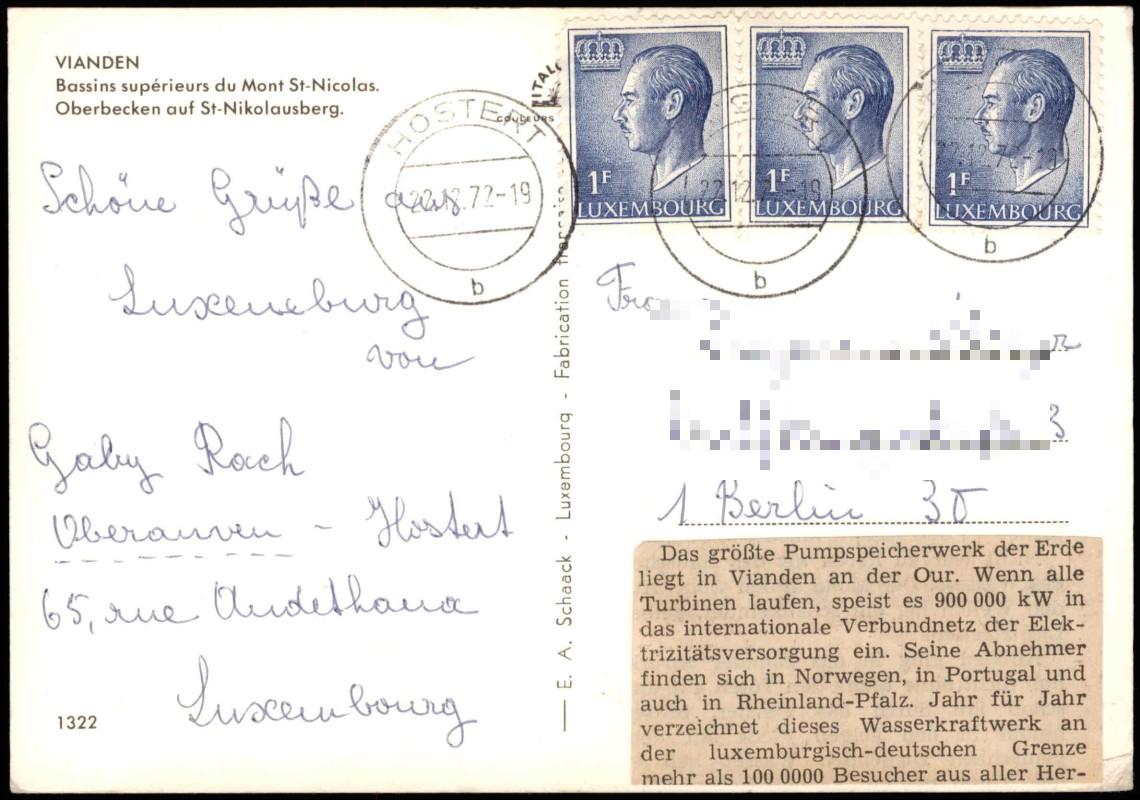 VIANDEN
Bassins supérieurs du Mont St-Nicolas.
Oberbecken auf St-Nikolausberg.
Schöne Grüße aus
Luxemburg
von
Gaby Rach
Oberanven - Hostert
65, rue Andethana
Luxembourg
1322
E. A. Schaack - Luxembourg - Fabrication française
COULEURS
HOSTERT
22.12.72-19
b
1F
LUXEMBOURG
1F
LUXEMBOURG
1F
LUXEMBOURG
22.12.7 -19
b
22.12.72-19
b
1 Berlin 30
Das größte Pumpspeicherwerk der Erde
liegt in Vianden an der Our. Wenn alle
Turbinen laufen, speist es 900 000 kW in
das internationale Verbundnetz der Elek-
trizitätsversorgung ein. Seine Abnehmer
finden sich in Norwegen, in Portugal und
auch in Rheinland-Pfalz. Jahr für Jahr
verzeichnet dieses Wasserkraftwerk an
der luxemburgisch-deutschen Grenze
mehr als 100 0000 Besucher aus aller Her-